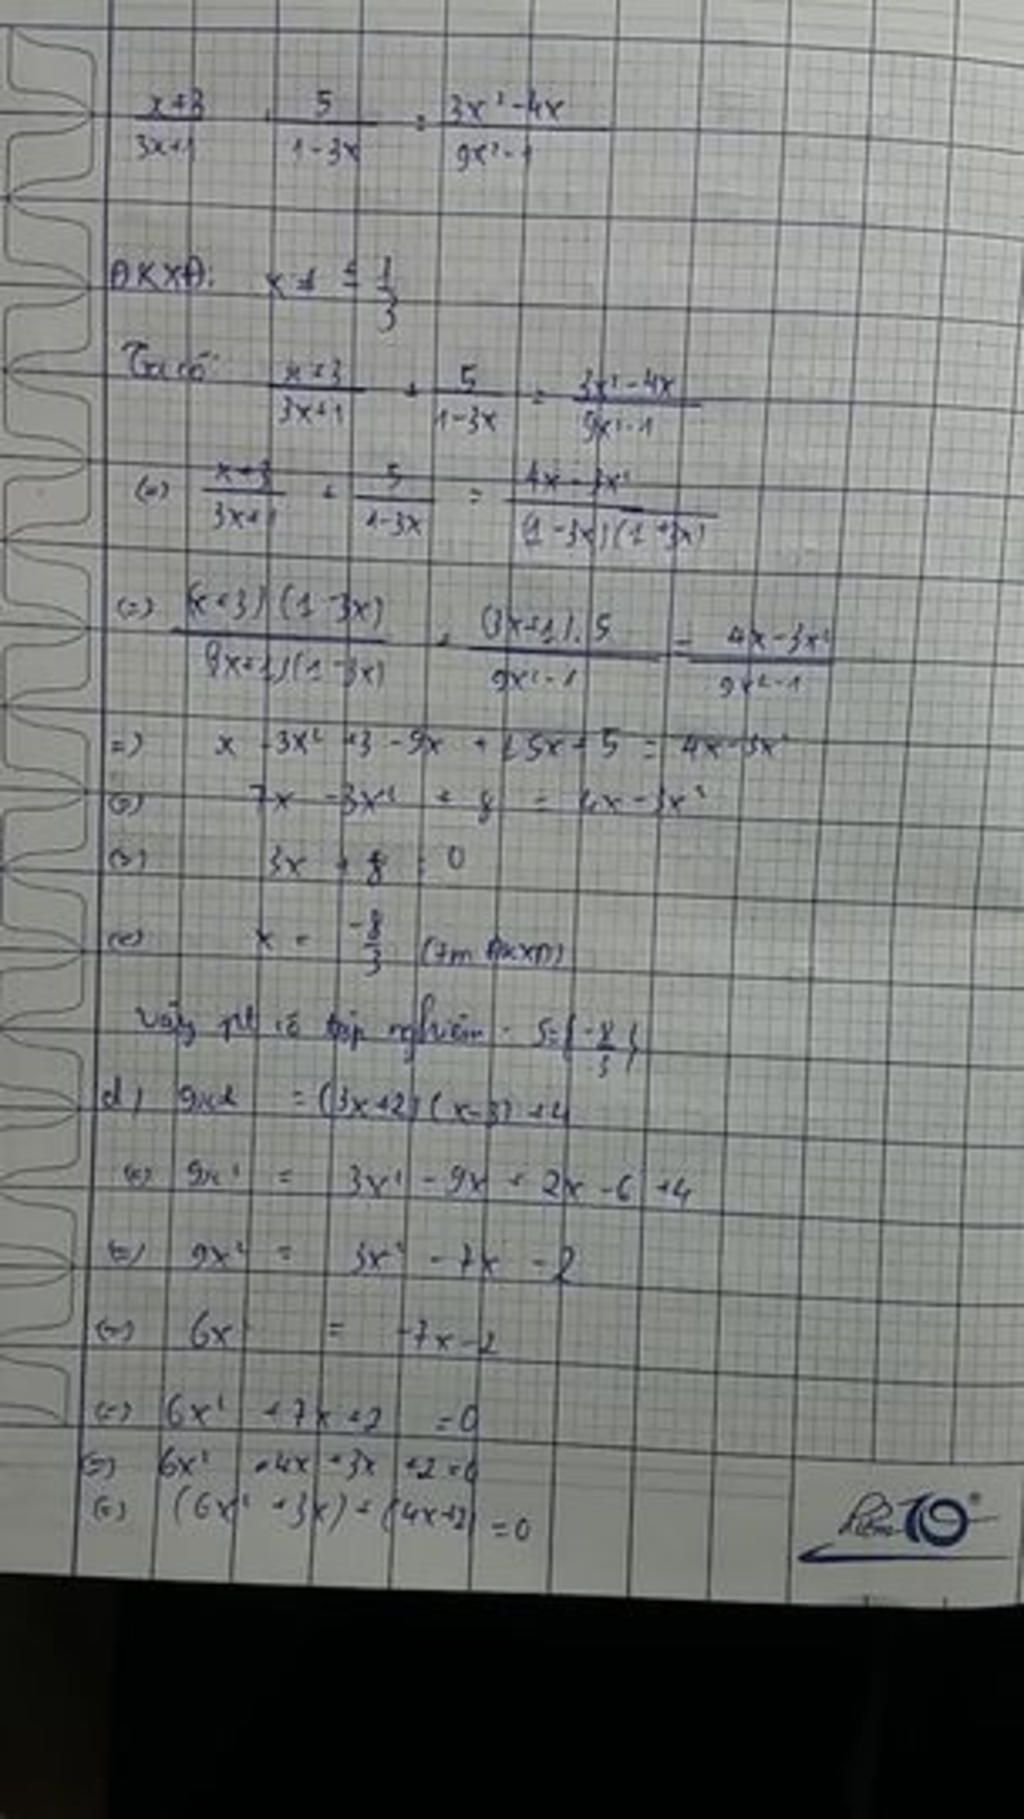 x+3/3x+1 + 5/1-3x = 3x²-4x/9x²-1
ĐKXĐ: x ≠ ± 1/3
Ta có: x+3/3x+1 + 5/1-3x = 3x²-4x/9x²-1
(=) x+3/3x+1 + 5/1-3x = 4x-3x²/(1-3x)(1+3x)
(=) (x+3)(1-3x)/(3x+1)(1-3x) + (3x+1).5/9x²-1 = 4x-3x²/9x²-1
=) x -3x² +3 -9x + 15x + 5 = 4x-3x²
(=) 7x -3x² + 8 = 4x-3x²
(=) 3x + 8 = 0
(=) x = -8/3 (tm ĐKXĐ)
Vậy pt có tập nghiệm S={-8/3}
d) 9x² = (3x+2)(x-3)+4
(=) 9x² = 3x² - 9x + 2x - 6 +4
(=) 9x² = 3x² - 7x - 2
(=) 6x² = -7x-2
(=) 6x² +7x+2 =0
(=) 6x² +4x+3x +2=0
(=) (6x² +3x)+(4x+2) =0
Điểm 10